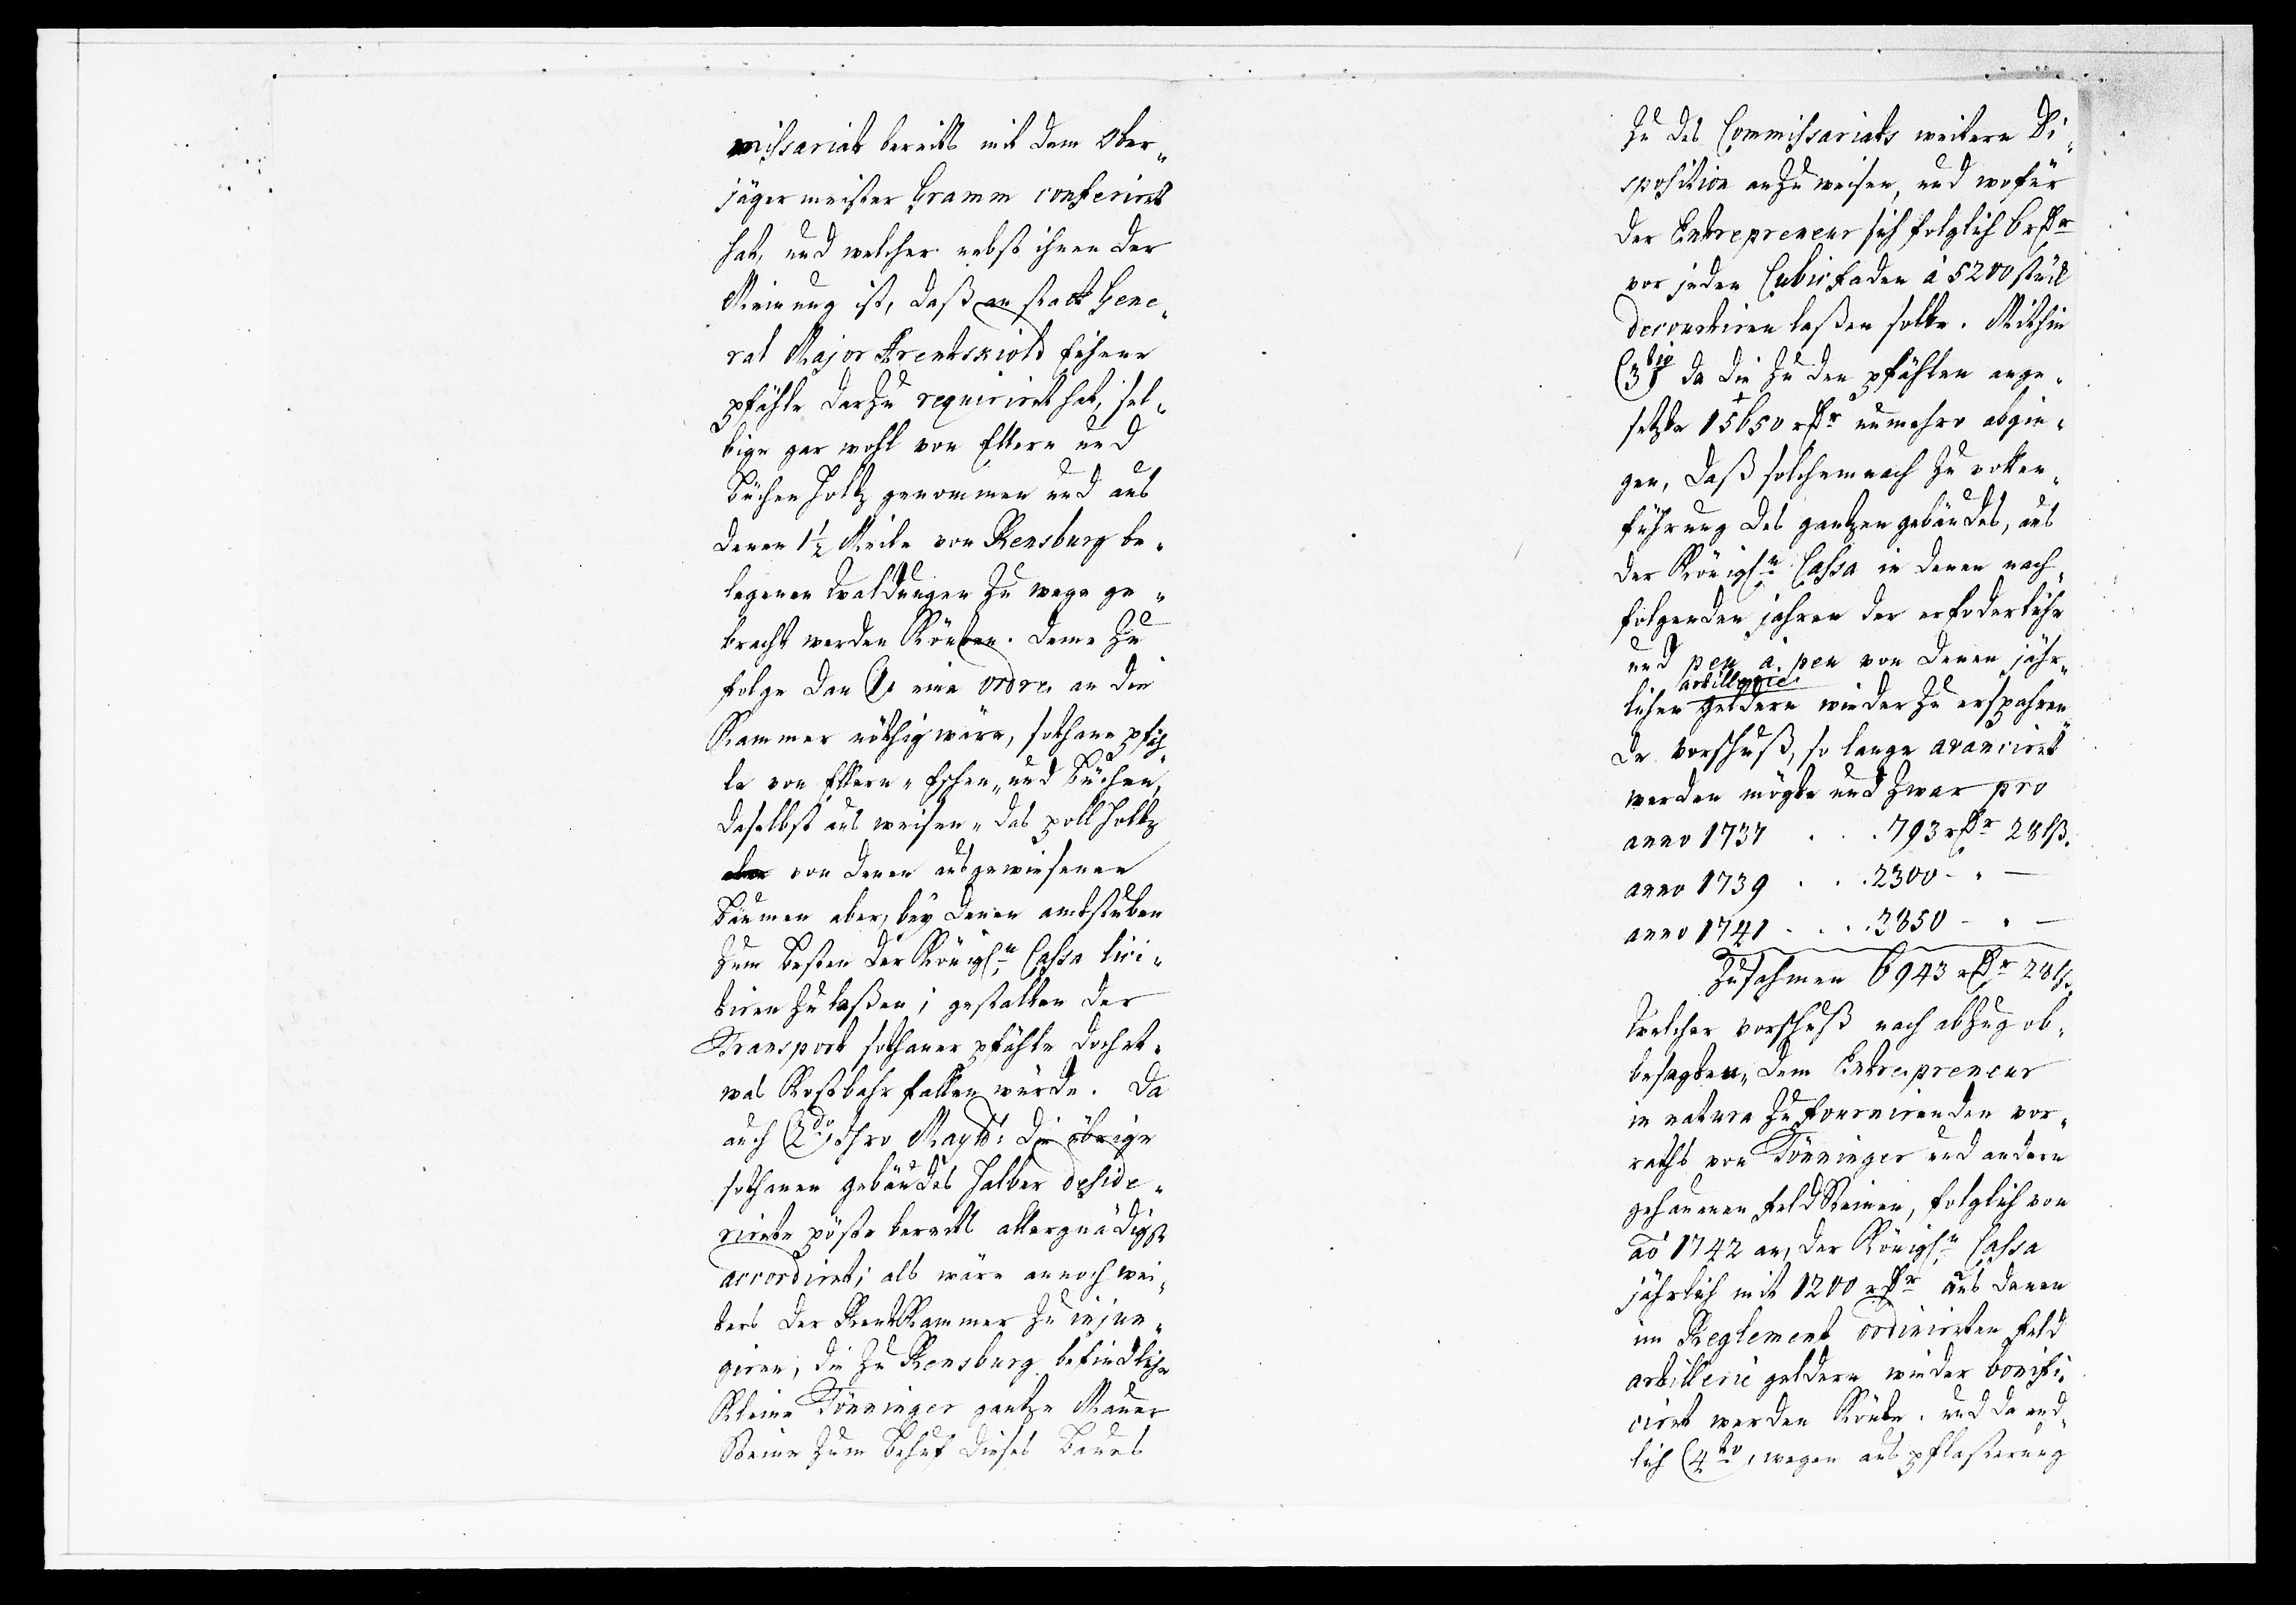 missariat bereits mit dem Ober-
jägermeister Gramm conferiret
hat, und welcher nebst ihnen der
Meinung ist, daß an statt Gene-
ral Major Arentskiold Eichene
pfähle darzu requiriret hat, sel-
bige gar wohl von Ellern und
Büchen Holtz genommen und aus
denen 1½ Meile von Rensburg be-
legenen Waldungen zu wege ge-
bracht werden Könten. deme zu
folge dan (1. eine ordre an die
Kammer nöthig wäre, sothane pfäh-
le von Ellern- Eschen- und Büchen,
daselbst aus weisen- das pollholtz
von denen ausgewiesenen
Bäumen aber, bey denen amtstuben
zum besten der Königl:n Cassa lici-
tiren zu laßen; gestalten der
Transport sothaner pfähle doch et-
was Kostbahr fallen würde. Da
auch (2do, Ihro Maytt: die übrige
sothanen gebäudes halber deside-
rirete pöste bereits allergnädigst
accordiret; als wäre annoch wei-
ters der RentKammer zu injun-
giren, die zu Rensburg befindliche
Kleine Tönninger gantze Mauer
Steine zum behuf dieses Baues
zu des Commissariats weitere Di-
sposition anzuweisen, und wofür
der Entrepreneur sich folglich 6 rdr
vor jeden Cubicfaden à 5200 stück
decourtiren laßen solte. Mithin
(3tio da die zu den pfählen ange-
setzte 15650 rdr nunmehro abgin-
gen, daß solchemnach zu vollen-
führung des gantzen gebäudes, aus
der Königl:n Cassa in denen nach-
folgenden jahren der erfoderliche
und peu à peu von denen jähr-
artillerie
lichen geldern wieder zu ersparen-
de vorschuß, so lange avanciret
werden mögte und zwar pro
anno 1737 . . . 793 rdr 28 lß.
anno 1739 . . . 2300 - " -
anno 1741 . . . 3850 - " -
Zusahmen 6943 rdr 28 lß.
Welcher vorschuß nach abzug ob-
besagten, dem Entrepreneur
in natura zu fournirenden vor-
raths von Tönninger und andern
gehauenen feldSteinen, folglich von
ao 1742 an, der Königl:n Cassa
jährlich mit 1200 rdr aus denen
im Reglement ordinirten feld
artillerie geldern wieder bonifi-
ciret werden Könte. und da end-
lich (4to, wegen aus pflasterung